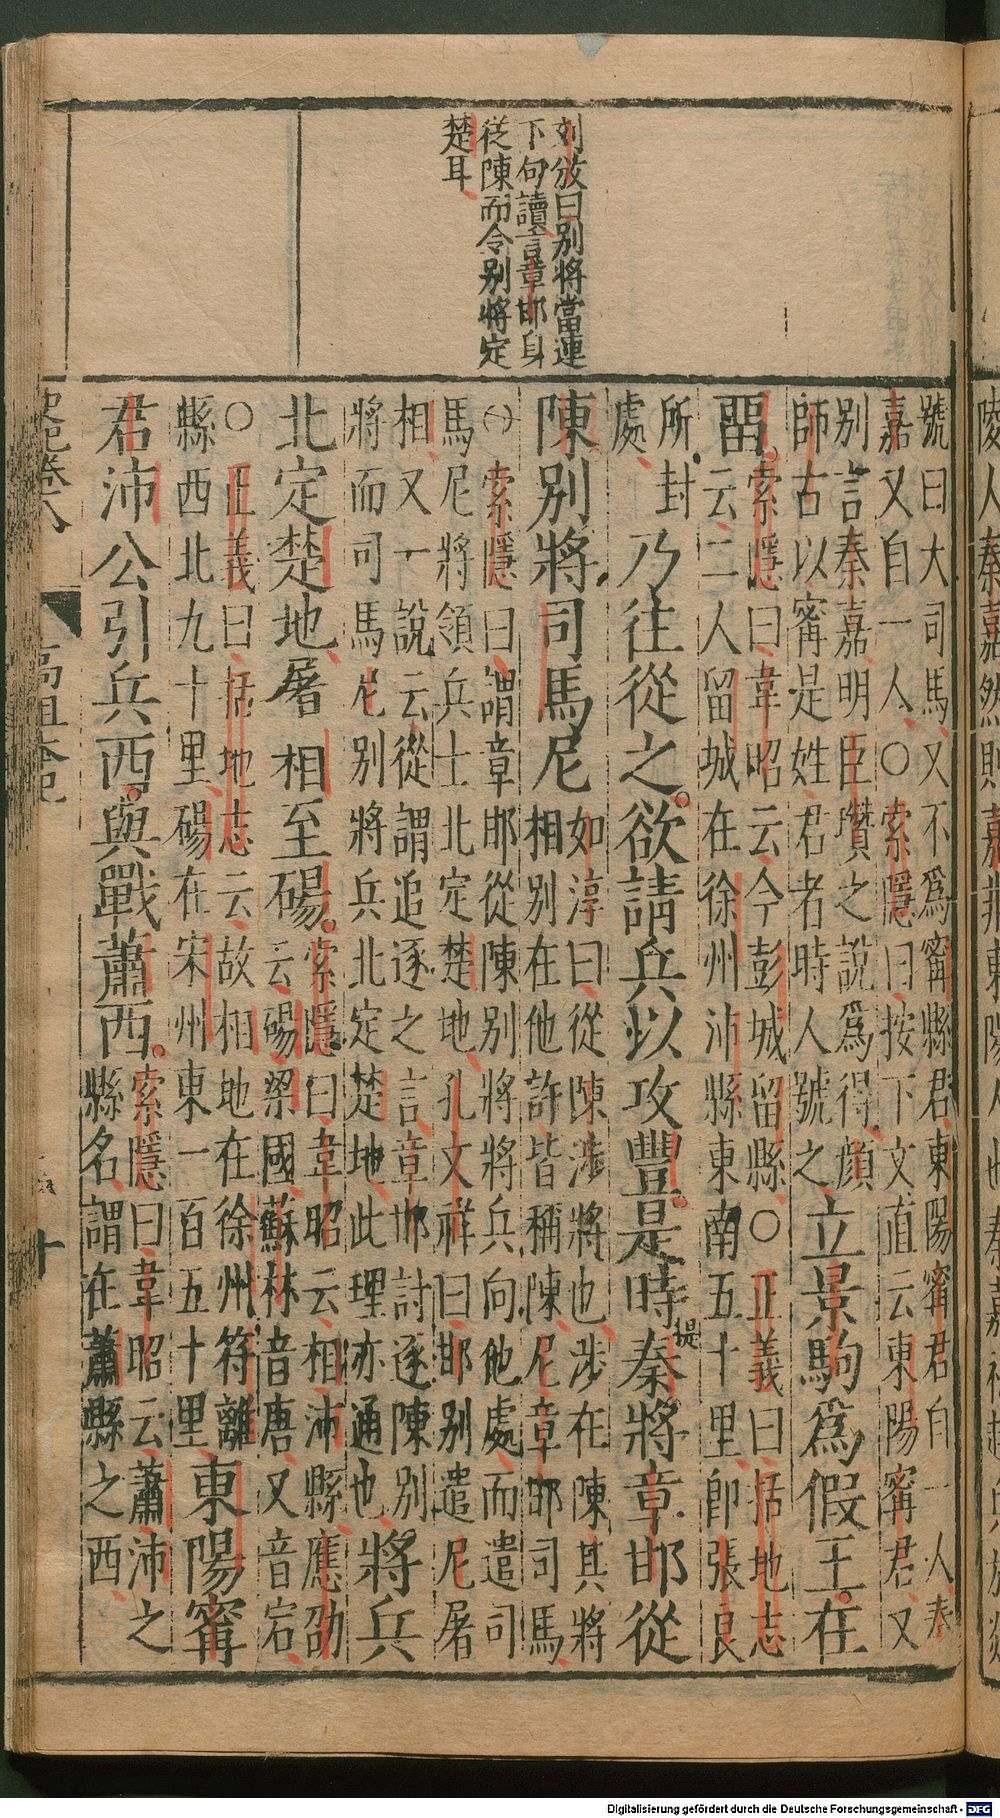 刘攽曰别將當連
下句讀言章邯身
從陳而令别將定
楚耳
號曰大司馬又不爲甯縣君東陽甯君自一人秦
嘉又自一人○索隱曰按下文直云東陽甯君又
别言秦嘉明臣瓚之說爲得顔
師古以甯是姓君者時人號之
立景駒爲假王在
畱
索隱曰韋昭云今彭城留縣○正義曰括地志
云二人留城在徐州沛縣東南五十里即張良
所封
處
乃往從之欲請兵以攻豐是時秦將章邯從
陳别將司馬尼
如淳曰從陳涉將也涉在陳其將
相别在他許皆稱陳尼章邯司馬
㊀索隱曰謂章邯從陳别將將兵向他處而遣司
馬尼將領兵士北定楚地孔文祥曰邯别遣尼屠
相又一說云從謂追逐之言章邯討逐陳别
將而司馬尼别將兵北定楚地此理亦通也
將兵
北定楚地屠相至碭
索隱曰韋昭云相沛縣應劭
云碭梁國蘇林音唐又音宕
○正義曰括地志云故相地在徐州符離
縣西北九十里碭在宋州東一百五十里
東陽甯
君沛公引兵西與戰蕭西
索隱曰韋昭云蕭沛之
縣名謂在蕭縣之西
史記卷八
高祖本紀
十
Digitalisierung gefördert durch die Deutsche Forschungsgemeinschaft - DFG